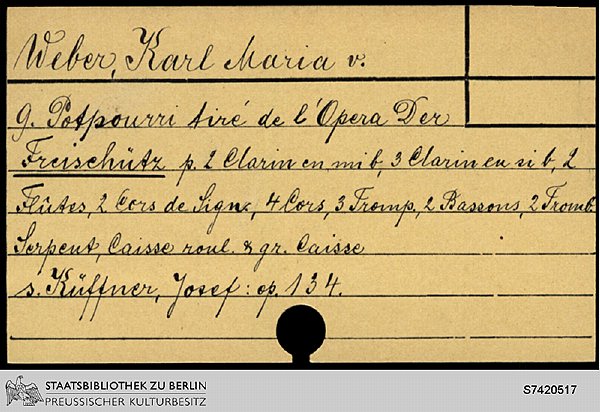 Weber, Karl Maria v.
9. Potpourri tiré de l'Opera Der
Freischütz p. 2 Clarin en mi b, 3 Clarin en si b, 2
Flûtes, 2 Cors de Sign., 4 Cors, 3 Tromp, 2 Bassons, 2 Tromb.
Serpent, Caisse roul. & gr. Caisse
s. Küffner, Josef: op. 134.
STAATSBIBLIOTHEK ZU BERLIN
PREUSSISCHER KULTURBESITZ
S7420517